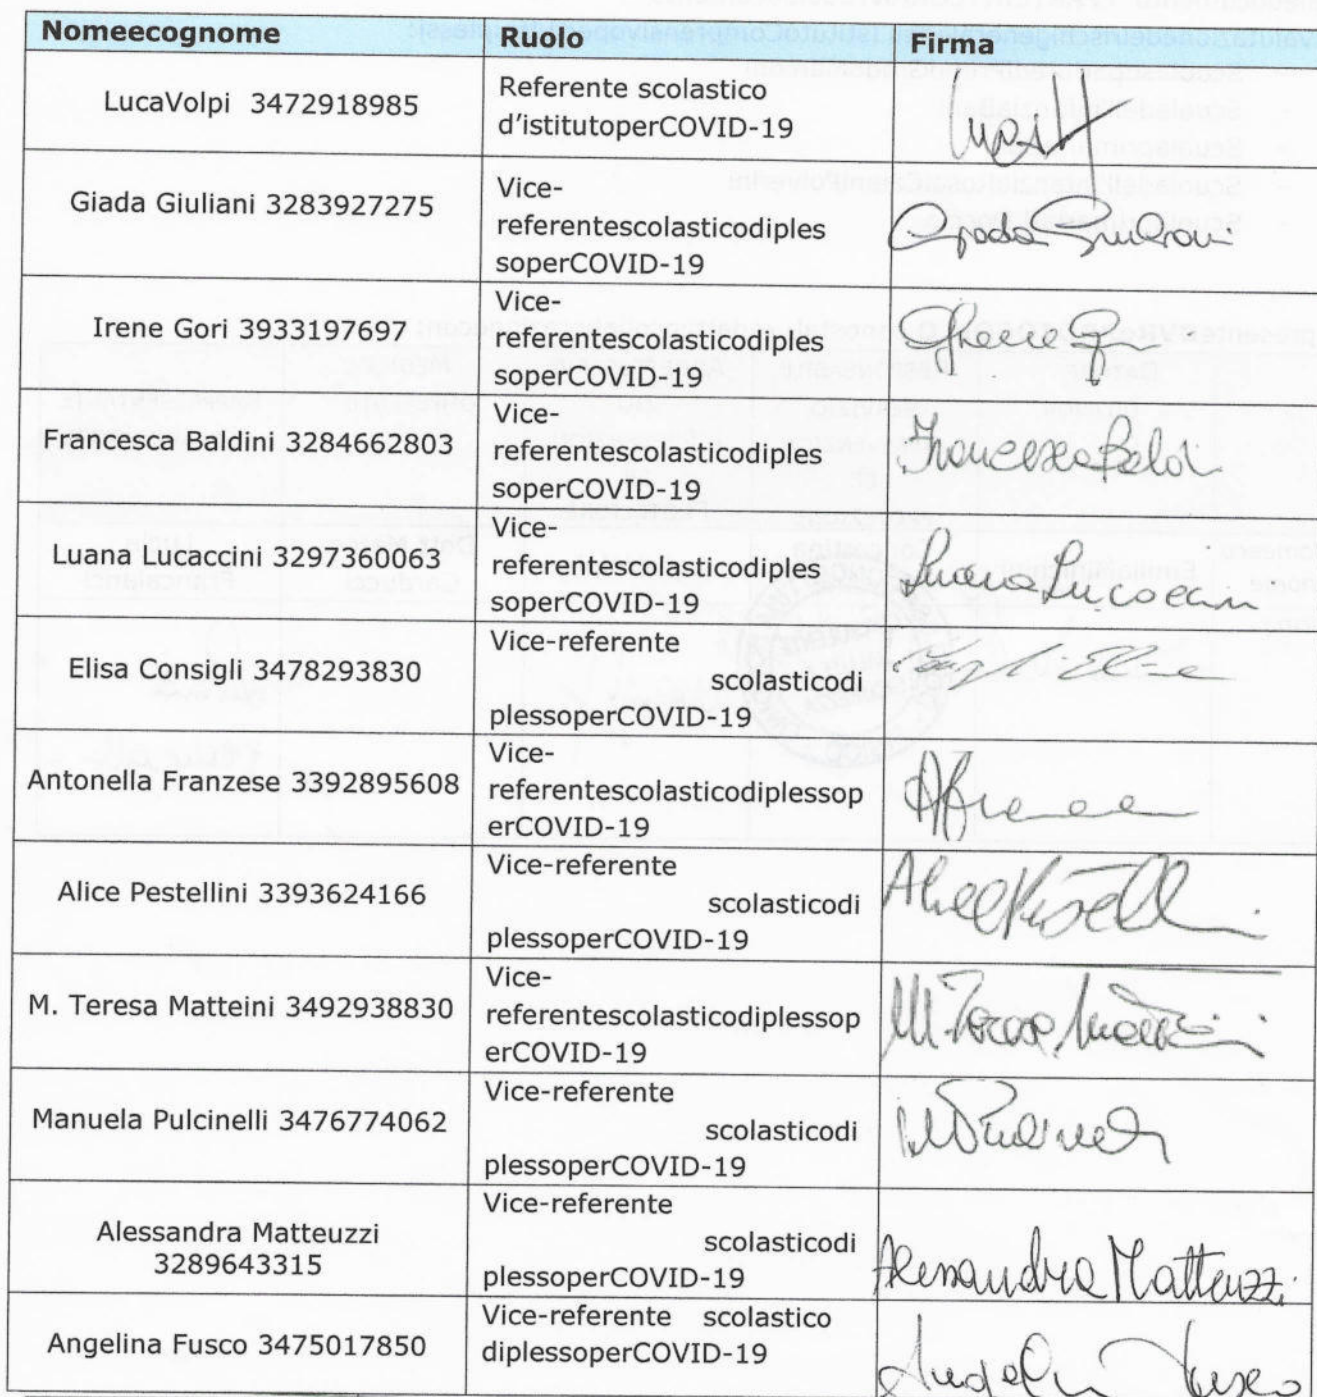 Nomeecognome Ruolo Firma
LucaVolpi 3472918985
Referente scolastico
d'istitutoperCOVID-19
Giada Giuliani 3283927275
Vice-
referentescolasticodiples
soperCOVID-19
Giada Giuliani
Irene Gori 3933197697
Vice-
referentescolasticodiples
soperCOVID-19
Irene Gori
Francesca Baldini 3284662803
Vice-
referentescolasticodiples
soperCOVID-19
Francesca Baldini
Luana Lucaccini 3297360063
Vice-
referentescolasticodiples
soperCOVID-19
Luana Lucaccini
Elisa Consigli 3478293830
Vice-referente
scolasticodi
plessoperCOVID-19
Antonella Franzese 3392895608
Vice-
referentescolasticodiplessop
erCOVID-19
Alice Pestellini 3393624166
Vice-referente
scolasticodi
plessoperCOVID-19
M. Teresa Matteini 3492938830
Vice-
referentescolasticodiplessop
erCOVID-19
M. Teresa Matteini
Manuela Pulcinelli 3476774062
Vice-referente
scolasticodi
plessoperCOVID-19
Alessandra Matteuzzi
3289643315
Vice-referente
scolasticodi
plessoperCOVID-19
Alessandra Matteuzzi
Angelina Fusco 3475017850
Vice-referente scolastico
diplessoperCOVID-19
Angelina Fusco